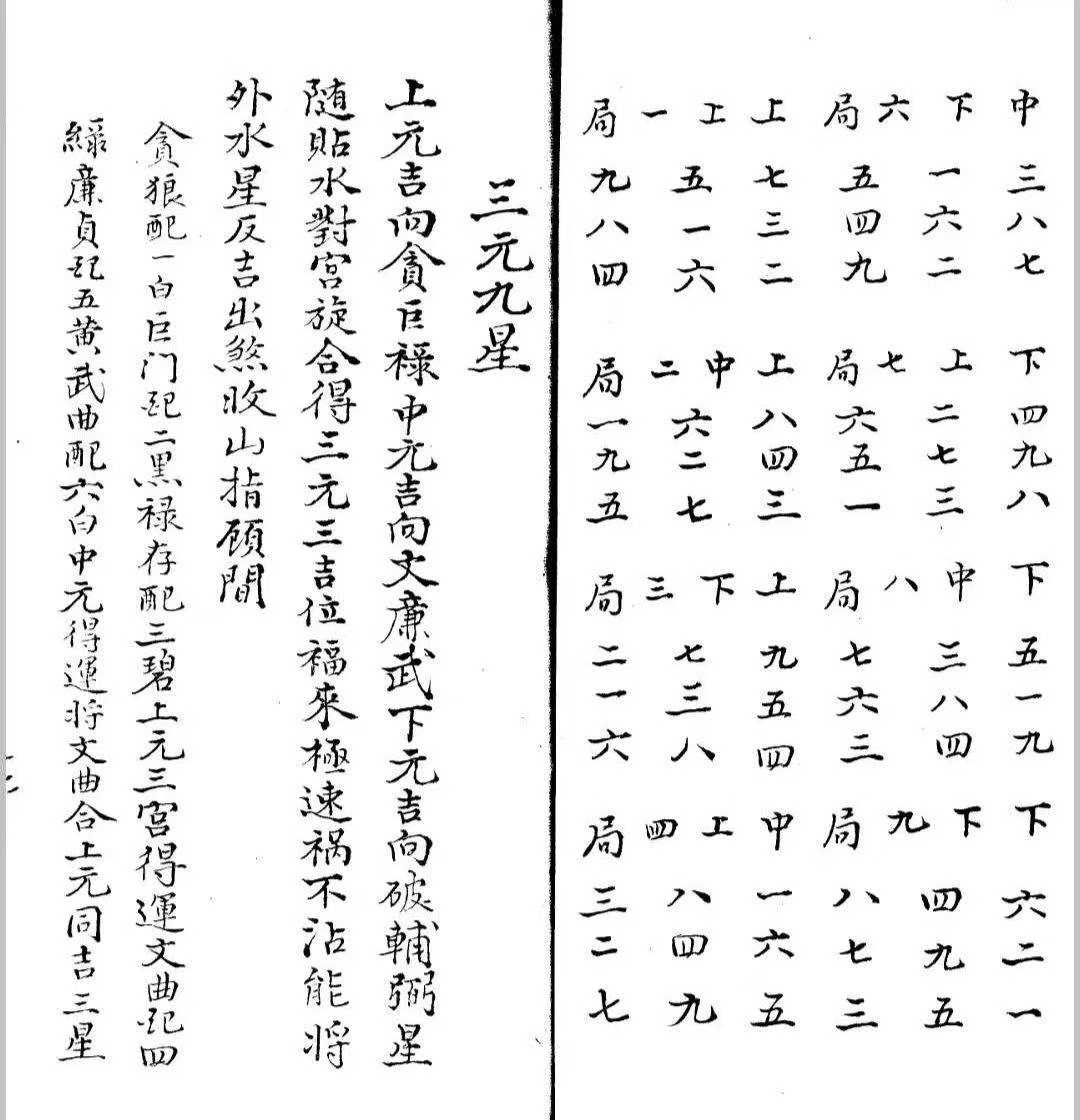 中三八七　下四九八　下五一九　下六二一
下一六二　上二七三　中三八四　下四九五
六　七　八　九
局五四九　局六五一　局七六三　局八七三
上七三二　上八四三　上九五四　中一六五
上五一六　中六二七　下七三八　上八四九
一　二　三　四
局九八四　局一九五　局二一六　局三二七
三元九星
上元吉向貪巨祿中元吉向文廉武下元吉向破輔弼星
隨貼水對宮旋合得三元三吉位福來極速禍不沾能將
外水星反吉出煞收山指顧間
貪狼配一白巨门配二黑禄存配三碧上元三宮得運文曲配四
綠廉貞配五黄武曲配六白中元得運将文曲合上元同吉三星